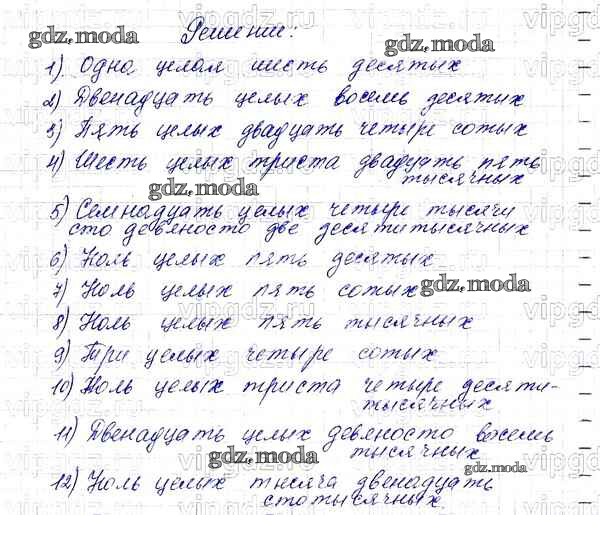 Решение:
1) Одна целая шесть десятых
2) Двенадцать целых восемь десятых
3) Пять целых двадцать четыре сотых
4) Шесть целых триста двадцать пять
тысячных
5) Семнадцать целых четыре тысячи
сто девяносто две десятитысячных
6) Ноль целых пять десятых
7) Ноль целых пять сотых
8) Ноль целых пять тысячных
9) Три целых четыре сотых
10) Ноль целых триста четыре десяти-
тысячных
11) Двенадцать целых девяносто восемь
тысячных
12) Ноль целых тысяча двенадцать
стотысячных.
gdz.moda
gdz.moda
gdz.moda
gdz.moda
gdz.moda
gdz.moda
vipgdz.ru